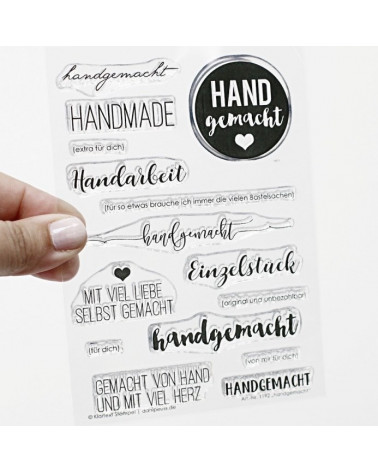 handgemacht
HANDMADE
HAND
gemacht
(extra für dich)
Handarbeit
(für so etwas brauche ich immer die vielen Bastelsachen)
handgemacht
Einzelstück
MIT VIEL LIEBE
SELBST GEMACHT
(original und unbezahlbar)
handgemacht
(für dich)
(von mir für dich)
GEMACHT VON HAND
UND MIT VIEL HERZ
HANDGEMACHT
© Klartext Stempel / danipeuss.de